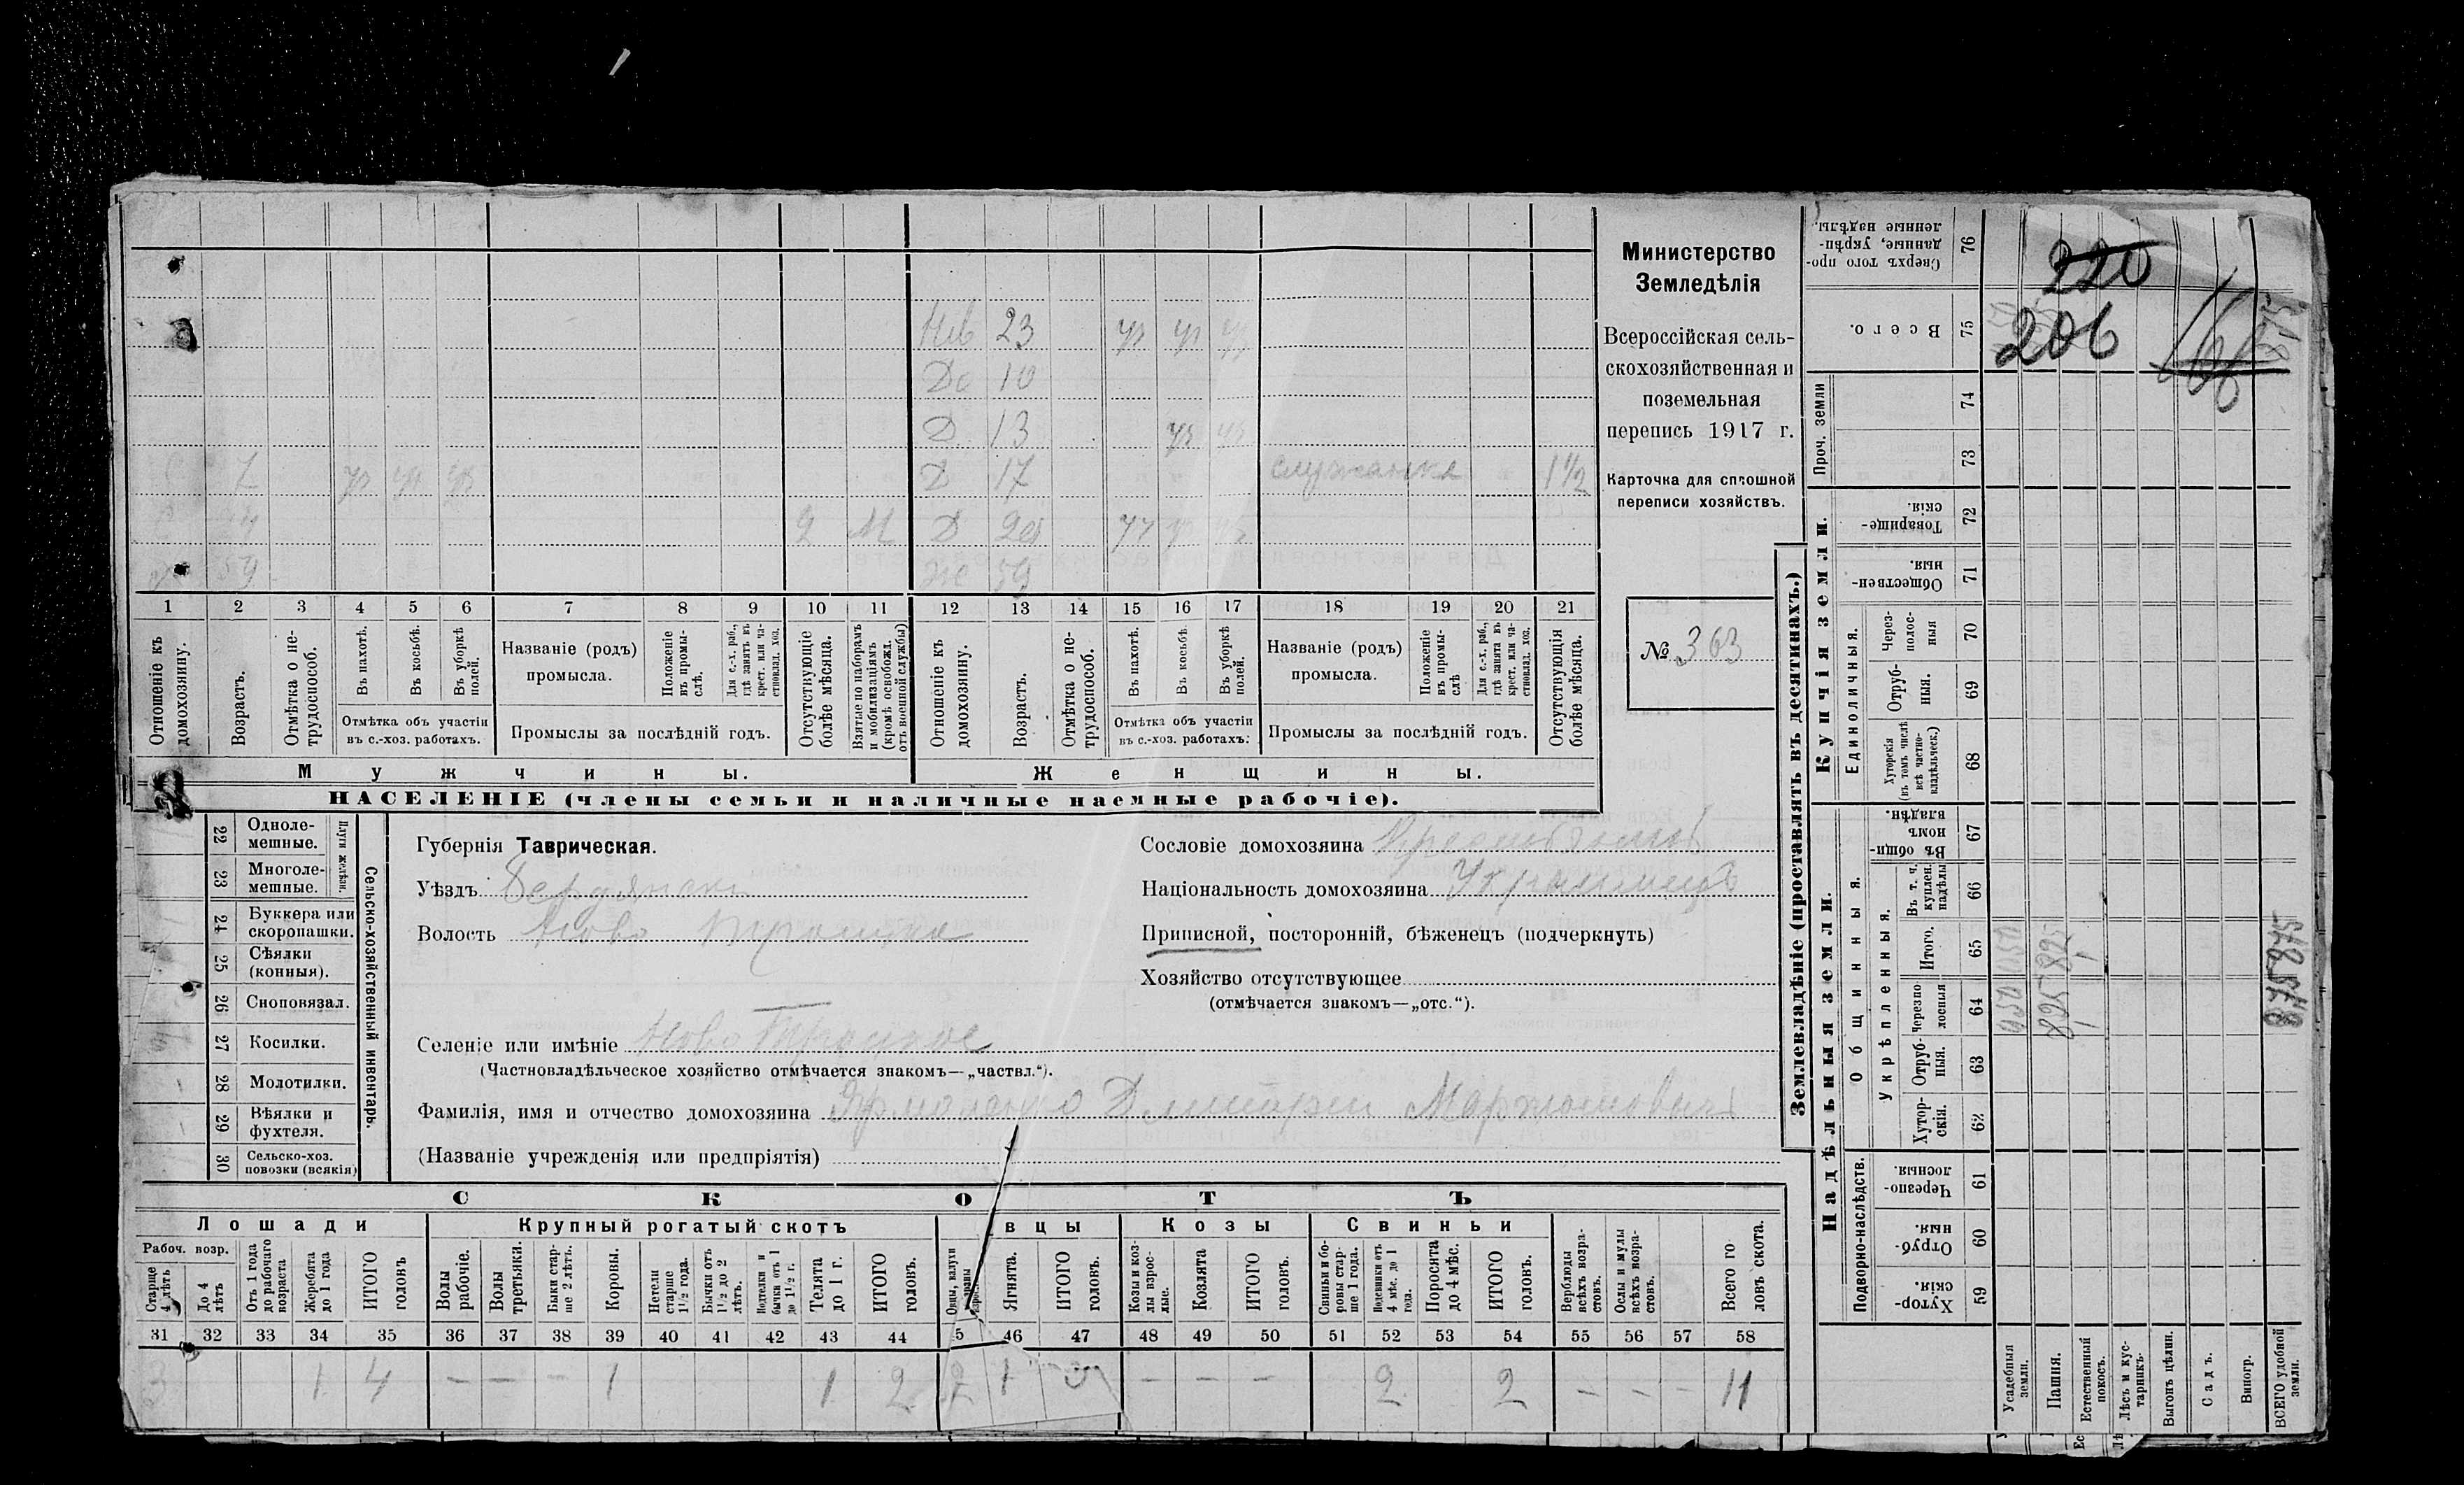 Нев 23 ур ур ур
До 10
Д 13 ур ур
7 ур ур ур Д 17 служанка 1½
2 М Д 20 ур ур ур
59 Же 59
1 2 3 4 5 6 7 8 9 10 11 12 13 14 15 16 17 18 19 20 21
Отношеніе къ домохозяину.
Возрастъ.
Отмѣтка о нетрудоспособ.
Въ пахотѣ.
Въ косьбѣ.
Въ уборкѣ полей.
Отмѣтка объ участіи въ с.-хоз. работахъ.
Названіе (родъ) промысла.
Положеніе въ промыслѣ.
Для с.-х. раб., гдѣ занятъ въ крест. или частновлад. хоз.
Промыслы за послѣдній годъ.
Отсутствующіе болѣе мѣсяца.
Взятые по наборамъ и мобилизаціямъ (кромѣ освобожд. отъ военной службы)
Отношеніе къ домохозяину.
Возрастъ.
Отмѣтка о нетрудоспособ.
Въ пахотѣ.
Въ косьбѣ.
Въ уборкѣ полей.
Отмѣтка объ участіи въ с.-хоз. работахъ:
Названіе (родъ) промысла.
Положеніе въ промыслѣ
Для с.-х. раб., гдѣ занята въ крест. или частновлад. хоз.
Промыслы за послѣдній годъ.
Отсутствующія болѣе мѣсяца.
Мужчины.
Женщины.
НАСЕЛЕНІЕ (члены семьи и наличные наемные рабочіе).
Министерство
Земледѣлія
Всероссійская сель-
скохозяйственная и
поземельная
перепись 1917 г.
Карточка для сплошной
переписи хозяйствъ.
№ 363
22 Одноле-мешные.
23 Многоле-мешные.
Плуги желѣзн.
24 Буккера или скоропашки.
25 Сѣялки (конныя).
26 Сноповязал.
27 Косилки.
28 Молотилки.
29 Вѣялки и фухтеля.
30 Сельско-хоз. повозки (всякія)
Сельско-хозяйственный инвентарь.
Губернія Таврическая.
Уѣздъ Бердянскій
Волость Ново Троицкая
Селеніе или имѣніе Ново Троицкое
(Частновладѣльческое хозяйство отмѣчается знакомъ—„частвл.“).
Фамилія, имя и отчество домохозяина Ярмоленко Дмитрій Мартиновичъ
(Названіе учрежденія или предпріятія)
Сословіе домохозяина Крестьянинъ
Національность домохозяина Украинецъ
Приписной, посторонній, бѣженецъ (подчеркнуть)
Хозяйство отсутствующее
(отмѣчается знакомъ—„отс.“).
СКОТЪ
Лошади
Рабоч. возр.
Старше 4 лѣтъ
До 4 лѣтъ
Отъ 1 года до рабочаго возраста
Жеребята до 1 года
ИТОГО головъ
Крупный рогатый скотъ
Волы рабочіе.
Волы третьяки.
Быки старше 2 лѣтъ.
Коровы.
Нетели старше 1½ года.
Бычки отъ 1½ до 2 лѣтъ.
Нетелки и бычки отъ 1 до 1½ г.
Телята до 1 г.
ИТОГО головъ.
вцы
Овцы, валухи
Ягнята.
ИТОГО головъ.
Козы
Козы и козлы взрослые.
Козлята
ИТОГО головъ.
Свиньи
Свиньи и боровы старше 1 года.
Подсвинки отъ 4 мѣс. до 1 года.
Поросята до 4 мѣс.
ИТОГО головъ.
Верблюды всѣхъ возрастовъ.
Ослы и мулы всѣхъ возрастовъ.
Всего головъ скота.
31 32 33 34 35 36 37 38 39 40 41 42 43 44 5 46 47 48 49 50 51 52 53 54 55 56 57 58
3 1 4 — — — 1 1 2 2 1 3 — — — 2 2 — — — 11
Землевладѣніе (проставлять въ десятинахъ.)
Купчія земли.
Сверхъ того проданные, укрѣпленные надѣлы. 76
Всего. 75
Проч. земли 74
73
Товарищескія. 72
Общественныя. 71
Единоличныя.
Черезполосныя 70
Отрубныя. 69
Хуторскія (въ томъ числѣ всѣ частновладѣльческ.) 68
Надѣльныя земли.
Общинныя.
Въ общинномъ владѣн. 67
Укрѣпленныя.
Въ т. ч. куплен. надѣлы 66
Итого. 65
Черезполосныя 64
Отрубныя. 63
Хуторскія. 62
Подворно-наслѣдств.
Черезполосныя. 61
Отрубныя. 60
Хуторскія. 59
Усадебныя земли.
Пашня.
Естественный покосъ.
Лѣсъ и кустарникъ
Выгонъ цѣлин.
Садъ.
Виногр.
ВСЕГО удобной земли.
220
206
166